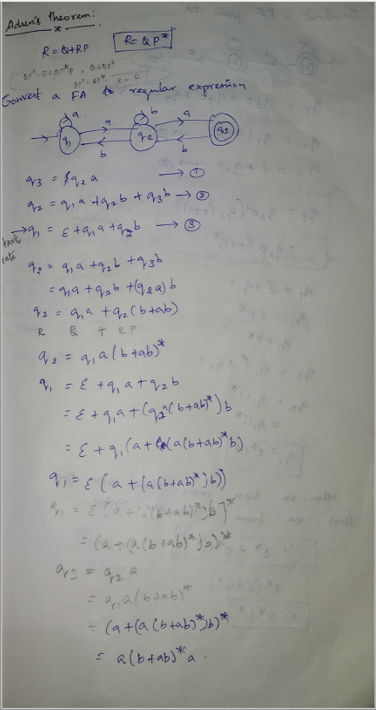 Arden's theorem:
R = Q+RP   R = QP*
Convert a FA to regular expression
a b a
a
q1 q2 q3
b b
q3 = q2 a → ①
q2 = q1a + q2b + q3b → ②
→ q1 = ε + q1a + q2b → ③
q2 = q1a + q2b + q3b
= q1a + q2b + (q2a)b
q2 = q1a + q2(b+ab)
R Q + RP
q2 = q1a(b+ab)*
q1 = ε + q1a + q2b
= ε + q1a + (q1a(b+ab)*)b
= ε + q1(a + (a(b+ab)*b)
q1 = ε(a + (a(b+ab)*)b))
q1 = ε[a + (a(b+ab)*)b]*
= (a + (a(b+ab)*)b)*
q3 = q2 a
= q1 a(b+ab)*
= (a + (a(b+ab)*)b)*
= a(b+ab)*a.